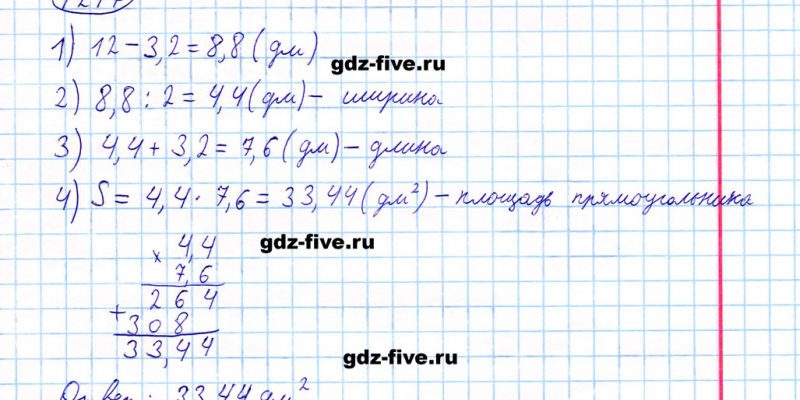 1) 12 - 3,2 = 8,8 (дм)
gdz-five.ru
2) 8,8 : 2 = 4,4 (дм) - ширина
3) 4,4 + 3,2 = 7,6 (дм) - длина
4) S = 4,4 · 7,6 = 33,44 (дм²) - площадь прямоугольника
× 4,4
gdz-five.ru
7,6
264
+ 308
33,44
gdz-five.ru
Ответ: 33,44 дм²